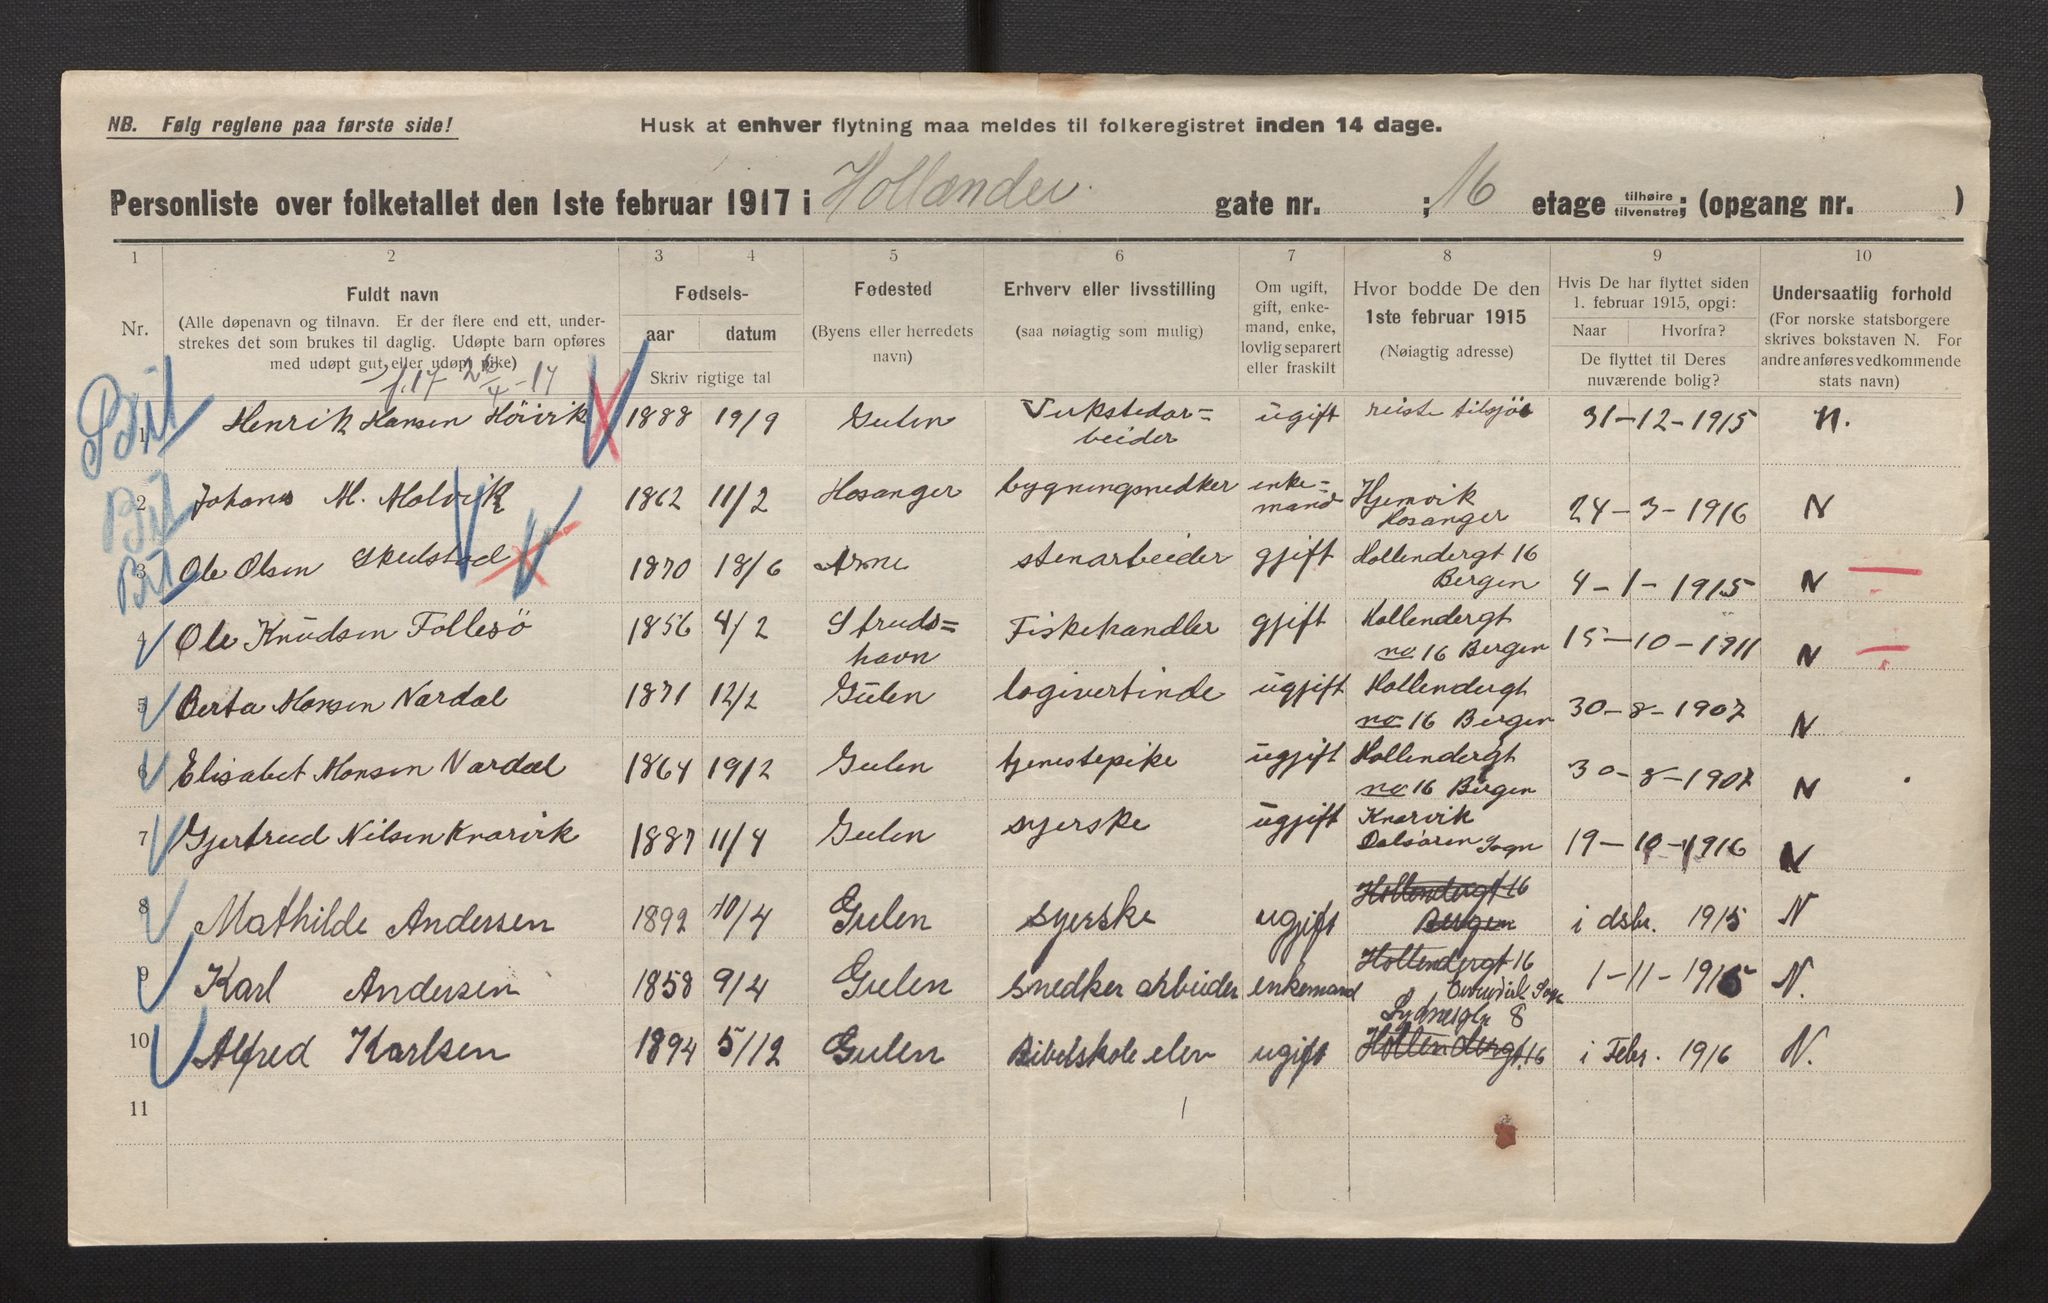 NB. Følg reglene paa første side!
Husk at enhver flytning maa meldes til folkeregistret inden 14 dage.
Personliste over folketallet den 1ste februar 1917 i Hollænder gate nr. ; 16 etage tilhøire tilvenstre; (opgang nr. )
1 2 3 4 5 6 7 8 9 10
Nr.
Fuldt navn
(Alle døpenavn og tilnavn. Er der flere end ett, under-
strekes det som brukes til daglig. Udøpte barn opføres
med udøpt gut, eller udøpt pike)
Fødsels-
aar datum
Skriv rigtige tal
Fødested
(Byens eller herredets
navn)
Erhverv eller livsstilling
(saa nøiagtig som mulig)
Om ugift,
gift, enke-
mand, enke,
lovlig separert
eller fraskilt
Hvor bodde De den
1ste februar 1915
(Nøiagtig adresse)
Hvis De har flyttet siden
1. februar 1915, opgi:
Naar Hvorfra?
De flyttet til Deres
nuværende bolig?
Undersaatlig forhold
(For norske statsborgere
skrives bokstaven N. For
andre anføres vedkommende
stats navn)
1 Henrik Hansen Höivik 1888 19/9 Gulen Verkstedar=
beider ugift reiste tilsjös 31-12-1915 N.
2 Johans M. Molvik 1862 11/2 Hosanger bygningsnedker enke=
mand Hjemvik
Hosanger 24-3-1916 N
3 Ole Olsen Skulstad 1870 18/6 Arne stenarbeider gjift Hollendergt 16
Bergen 4-1-1915 N
4 Ole Knudsen Follesö 1856 4/2 Struds=
havn Fiskehandler gjift Hollendergt
no 16 Bergen 15-10-1911 N
5 Berta Monsen Nardal 1871 12/2 Gulen logivertinde ugjift Hollendergt
no 16 Bergen 30-8-1907 N
6 Elisabet Monsen Nardal 1864 19/2 Gulen tjenestepike ugjift Hollendergt
no 16 Bergen 30-8-1907 N
7 Gjertrud Nilsen Knarvik 1887 11/4 Gulen syerske ugjift Knarvik
Dalsören Sogn 19-10-1916 N
8 Mathilde Andersen 1892 10/4 Gulen syerske ugjift Hollendergt 16
Bergen i dsbr. 1915 N
9 Karl Andersen 1858 9/4 Gulen Snedker arbeider enkemand Hollendergt 16
1-11-1915 N.
10 Alfred Karlsen 1894 5/12 Gulen Bibelskole elev ugift 8
Hollendergt. 16 i Febr. 1916 N.
11